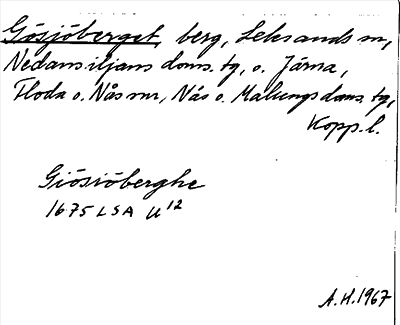 Gösjöberget, berg, Leksands sn,
Nedansiljans doms. tg, o. Järna,
Floda o. Nås snr, Nås o. Malungs doms. tg,
Kopp. l.
Giösiöberghe
1675 LSA U 12
A.H. 1967